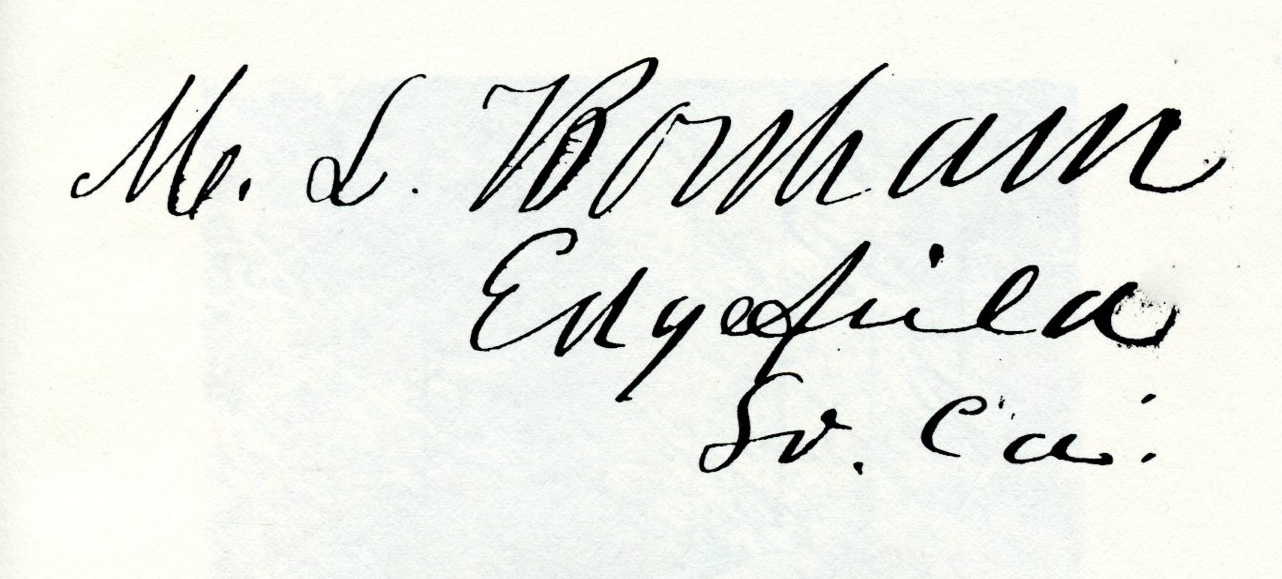 M. L. Bonham
Edgefield
So. Ca.